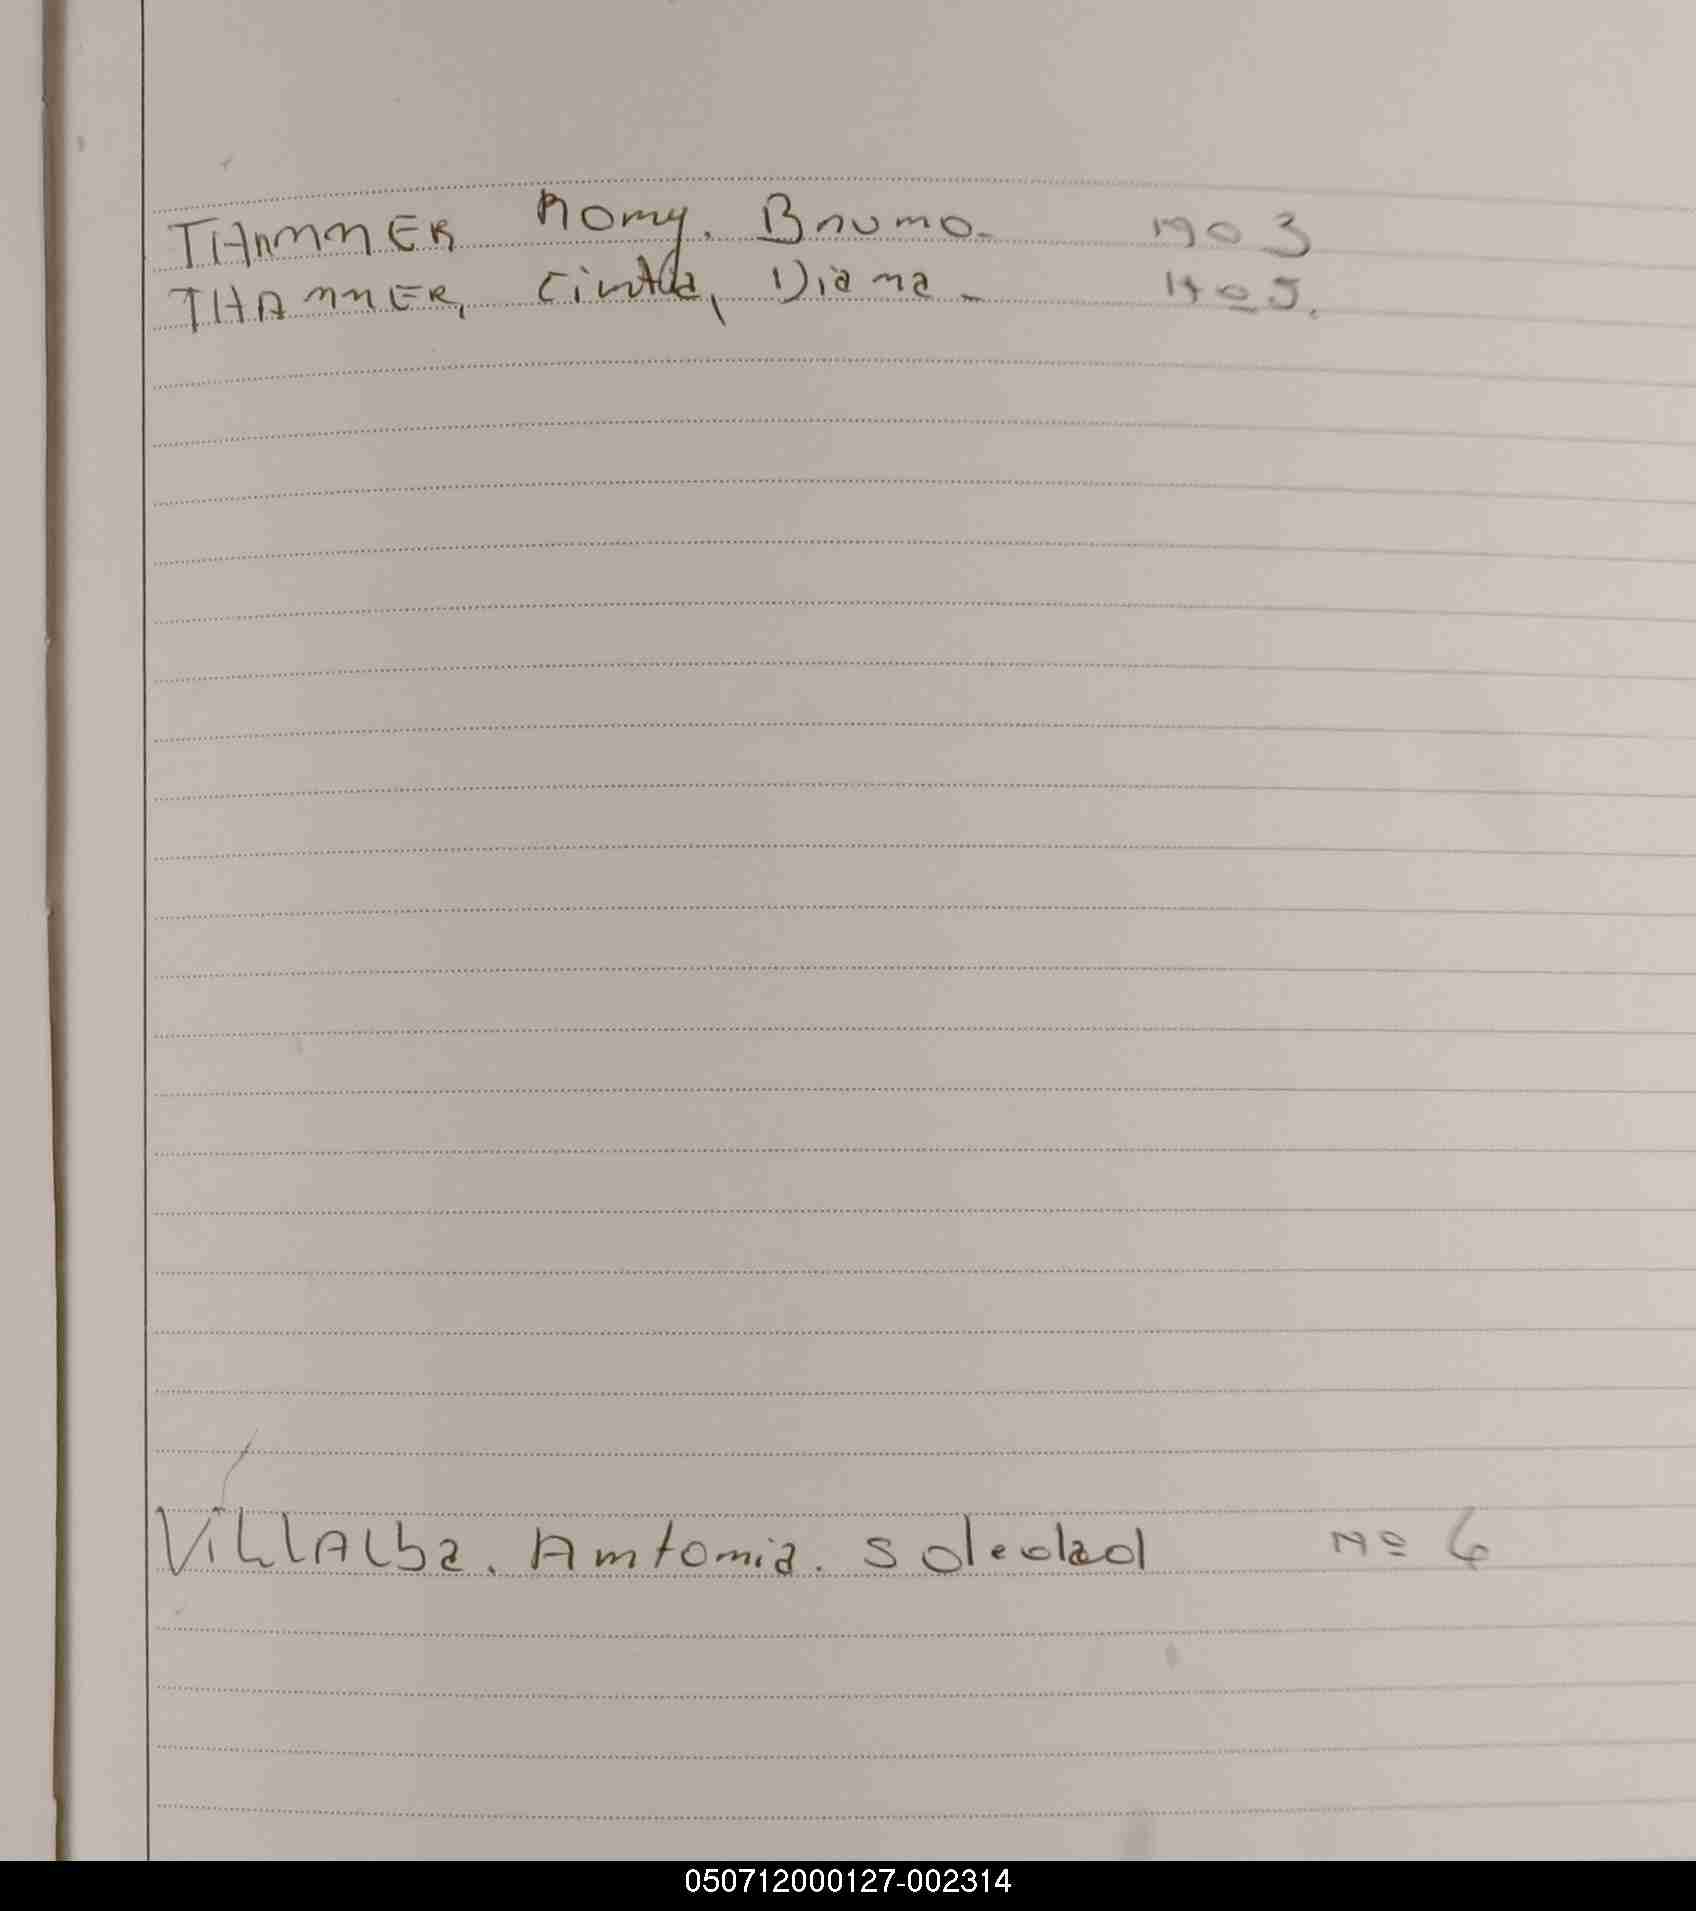 THAMMER Romy. Bruno. Nº 3
THAMMER, Cintia, Diana. Nº 5.
VillAlba. Antonia. Soledad Nº 6
050712000127-002314